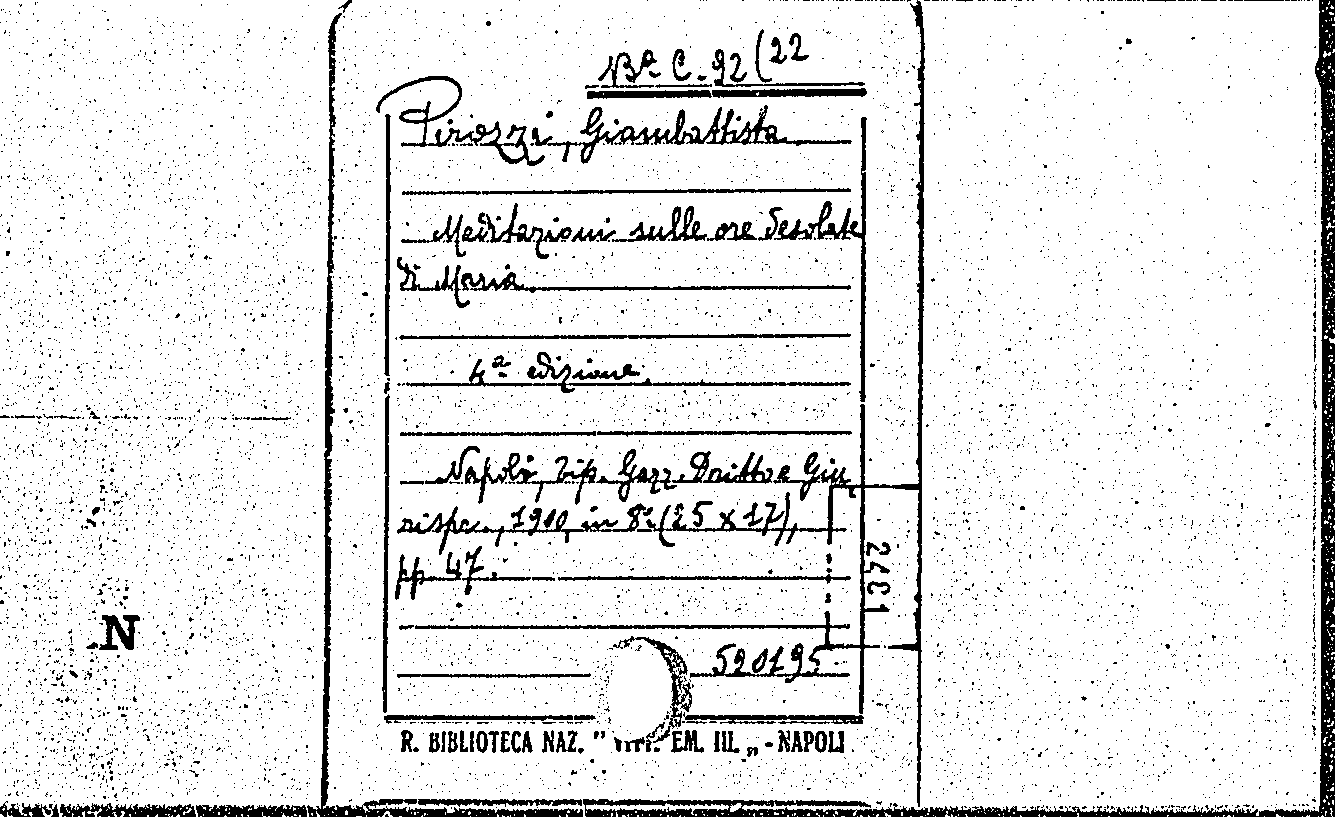 Bª C. 92 (22
Pirozzi, Giambattista
Meditazioni sulle ore desolate
di Maria.
4ª edizione.
Napoli, Tip. Gazz. Diritto e Giu
rispr., 1910, in 8º (25 x 17),
pp. 47.
2401
N
520195
R. BIBLIOTECA NAZ. " VITT. EM. III. „ - NAPOLI